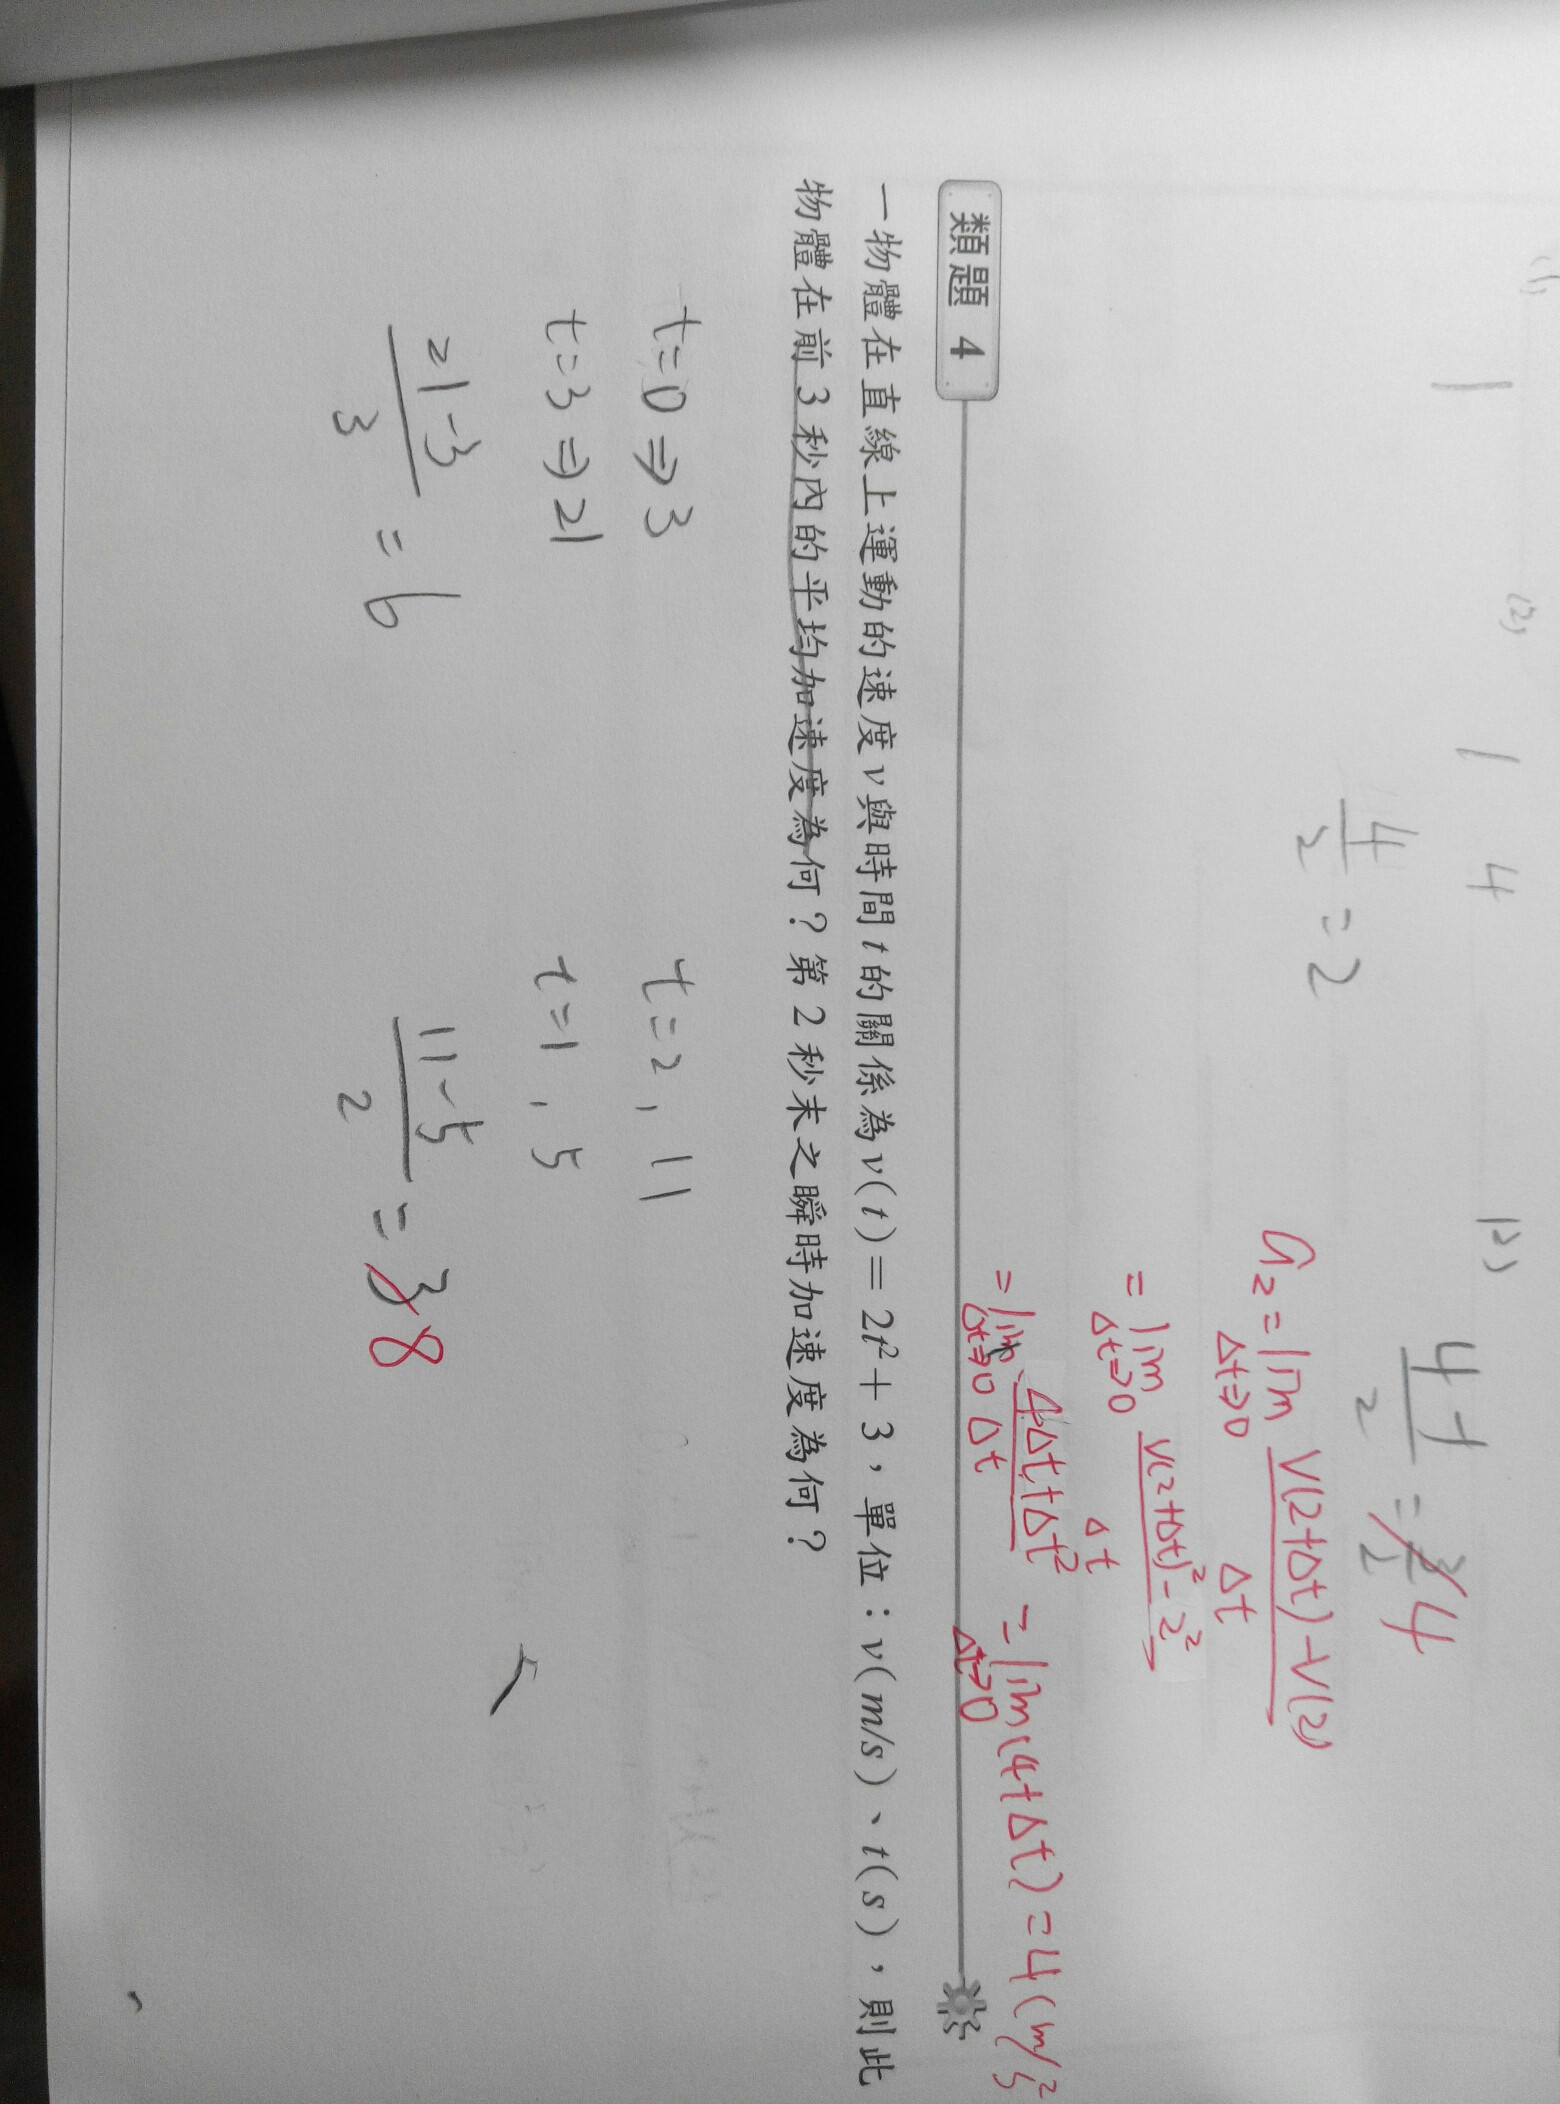 (1) (2) (3)
1 1 4
4/2 = 2
4-1/2 = 3/2 4
a₂ = lim Δt→0 V(2+Δt)-V(2)/Δt
= lim Δt→0 V(2+Δt)²-2²/Δt
= lim Δt→0 4Δt+Δt²/Δt = lim Δt→0 (4+Δt) = 4 (m/s²
類題 4
一物體在直線上運動的速度v與時間t的關係為v(t)=2t²+3,單位:v(m/s)、t(s),則此
物體在前3秒內的平均加速度為何?第2秒末之瞬時加速度為何?
t=0⇒3 t=2, 11
t=3⇒21 t=1, 5
21-3/3 = 6 11-5/2 = 3 8